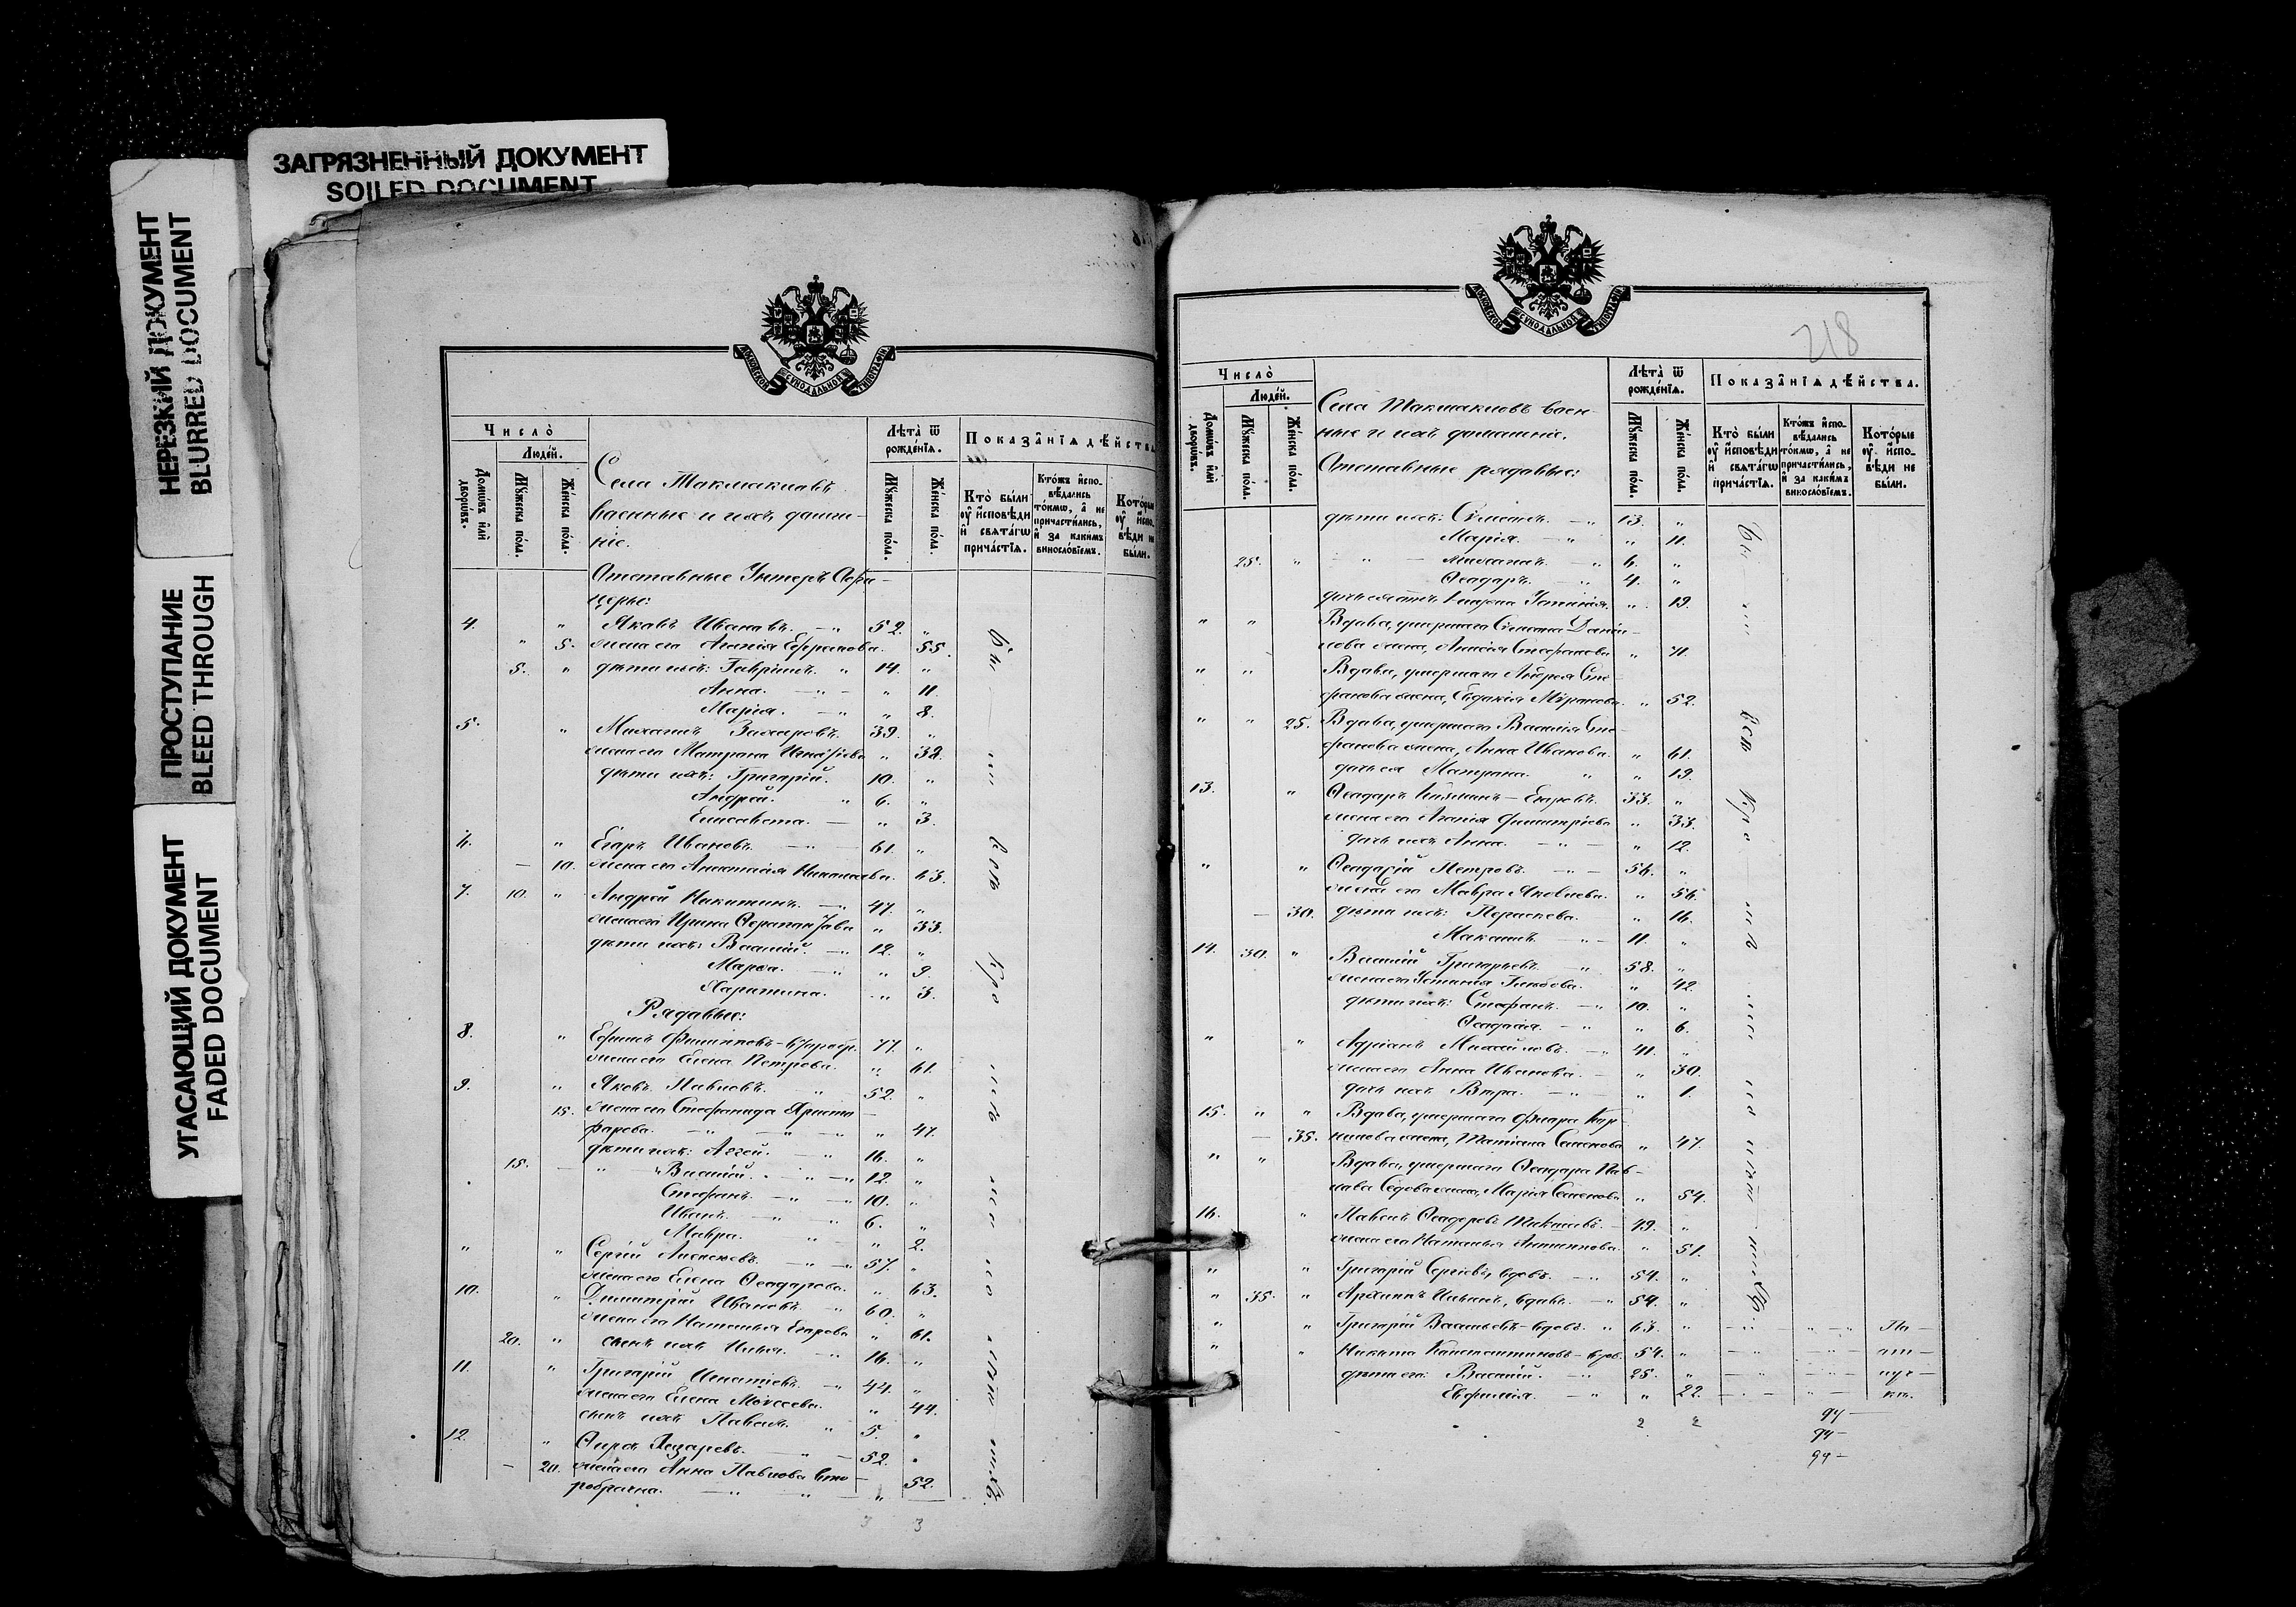 ЗАГРЯЗНЕННЫЙ ДОКУМЕНТ
SOILED DOCUMENT
НЕРЕЗКИЙ ДОКУМЕНТ
BLURRED DOCUMENT
ПРОСТУПАНИЕ
BLEED THROUGH
УГАСАЮЩИЙ ДОКУМЕНТ
FADED DOCUMENT
МОСКОВСКОЙ СѴНОДАЛЬНОЙ ТИПОГРАФІИ
Число̀
Людей.
Домѡвъ илѝ дворѡвъ.
Мꙋжеска по́ла.
Же́нска по́ла.
Села Такмаклавъ
военные и ихъ домаш-
ніе.
Лѣта̀ ѿ рожде́нїѧ.
Мꙋжеска по́ла.
Же́нска по́ла.
Показа̑нїѧ дѣ́йства
Кто̀ бы́ли ᲂу҆ и҆сповѣди и҆ свѧта́гѡ прича́стїѧ.
Кто́жъ и҆спо- вѣ́дались то́кмѡ, а҆ не причасти́лись, и҆ за каки́мъ винословїемъ.
Кото́рые ᲂу҆ и҆спо- вѣди не бы́ли.
Отставные Унтеръ Офи-
церы:
4. " Яковъ Ивановъ. 52. "
" 5. жена его Агапія Ефремова. 55.
5. " дѣти ихъ: Гавріилъ. " 14. "
Анна. " 11.
Марія. " 8.
5. " Михаилъ Захаровъ. 39. "
жена его Матрона Игнатіева " 38.
дѣти ихъ: Григорій. 10. "
Андрей. " 6. "
Елисавета. " 3.
6. " Егоръ Ивановъ. 61. "
10. жена его Анастасія Николаева. 63.
7. 10. " Андрей Никитинъ. 47. "
жена его Ирина Ферапонтова " 33.
дѣти ихъ: Василій. 12. "
Марѳа. " 9.
Харитина. " 3.
Рядовые:
8. " Ефимъ Филипповъ 77. "
жена его Елена Петрова. " 61.
9. " Яковъ Павловъ. 52. "
15. жена его Стефанида Христо-
форова. " 47.
дѣти ихъ: Аггей. 16. "
15. " Василій. 12. "
Стефанъ. 10. "
Иванъ. 6. "
Мавра. " 2.
" " Сергій Алексеевъ. 57. "
жена его Елена Ѳеодорова. " 63.
10. " Димитрій Ивановъ. 60. "
жена его Наталья Егорова " 61.
20. " сынъ ихъ Илья. 16. "
11. " Григорій Игнатіевъ. 44. "
жена его Елена Моѵсеева. " 44.
сынъ ихъ Павелъ. 5. "
12. " Лазаревъ. 52. "
20. жена его Анна Павлова вто-
робрачна. " 52.
3 3
218
МОСКОВСКОЙ СѴНОДАЛЬНОЙ ТИПОГРАФІИ
Число̀
Людей.
Домѡвъ илѝ дворѡвъ.
Мꙋжеска по́ла.
Же́нска по́ла.
Села Такмаклавъ воен-
ные и ихъ домашніе.
Отставные рядовые:
Лѣта̀ ѿ рожде́нїѧ.
Мꙋжеска по́ла.
Же́нска по́ла.
Показа̑нїѧ дѣ́йства.
Кто̀ бы́ли ᲂу҆ и҆сповѣди и҆ свѧта́гѡ прича́стїѧ.
Кто́жъ и҆спо- вѣ́дались то́кмѡ, а҆ не причасти́лись, и҆ за каки́мъ винословїемъ.
Кото́рые ᲂу҆ и҆спо- вѣди не бы́ли.
дѣти ихъ: Симеонъ. 13. "
Марія. " 11.
25. " Михаилъ. 6. "
Ѳеодоръ. 4. "
" 19.
" " Вдова, умершаго Симеона Дани-
лова жена, Стефанова " 71.
" " Вдова, умершаго Андрея Сте-
фанова жена, Евдокія Миронова. " 52.
" " 25. Вдова, умершаго Василія Сте-
фанова жена, Анна Иванова. " 61.
дочь ея Матрона. " 19.
13. " Ѳеодоръ Егоровъ. 33. "
жена его Агапія Димитріева " 33.
дочь ихъ Анна. " 12.
" " Ѳеодосій Петровъ. 56. "
жена его Мавра Яковлева. " 56.
30. дѣти ихъ: Параскева. " 16.
Максимъ. 11. "
14. 30. " Василій Григорьевъ. 58. "
жена его Устинія Глебова. " 42.
дѣти ихъ: Стефанъ. 10. "
Ѳеодосія. " 6.
" " Адріанъ Михайловъ. 41. "
жена его Анна Иванова. " 30.
дочь ихъ Вѣра. " 1.
15. " " Вдова, умершаго Фрола Кор-
35. нилова жена, Татіана Семенова " 47.
" " Вдова, умершаго Ѳеодора Пав-
лова Седова жена, Марія Семенова " 54.
16. " Павелъ Ѳеодоровъ 49. "
жена его Наталья Антипова. " 51.
" " Григорій Сергіевъ, вдовъ. 54. "
" 35. " Архипъ Ильинъ, вдовъ. 54. "
" " Григорій Васильевъ - вдовъ. 63. " По-
" " Никита Константиновъ - вдов. 54. " от-
дѣти его: Василій. 25. " луч-
Евфимія. " 22. кѣ.
2 2